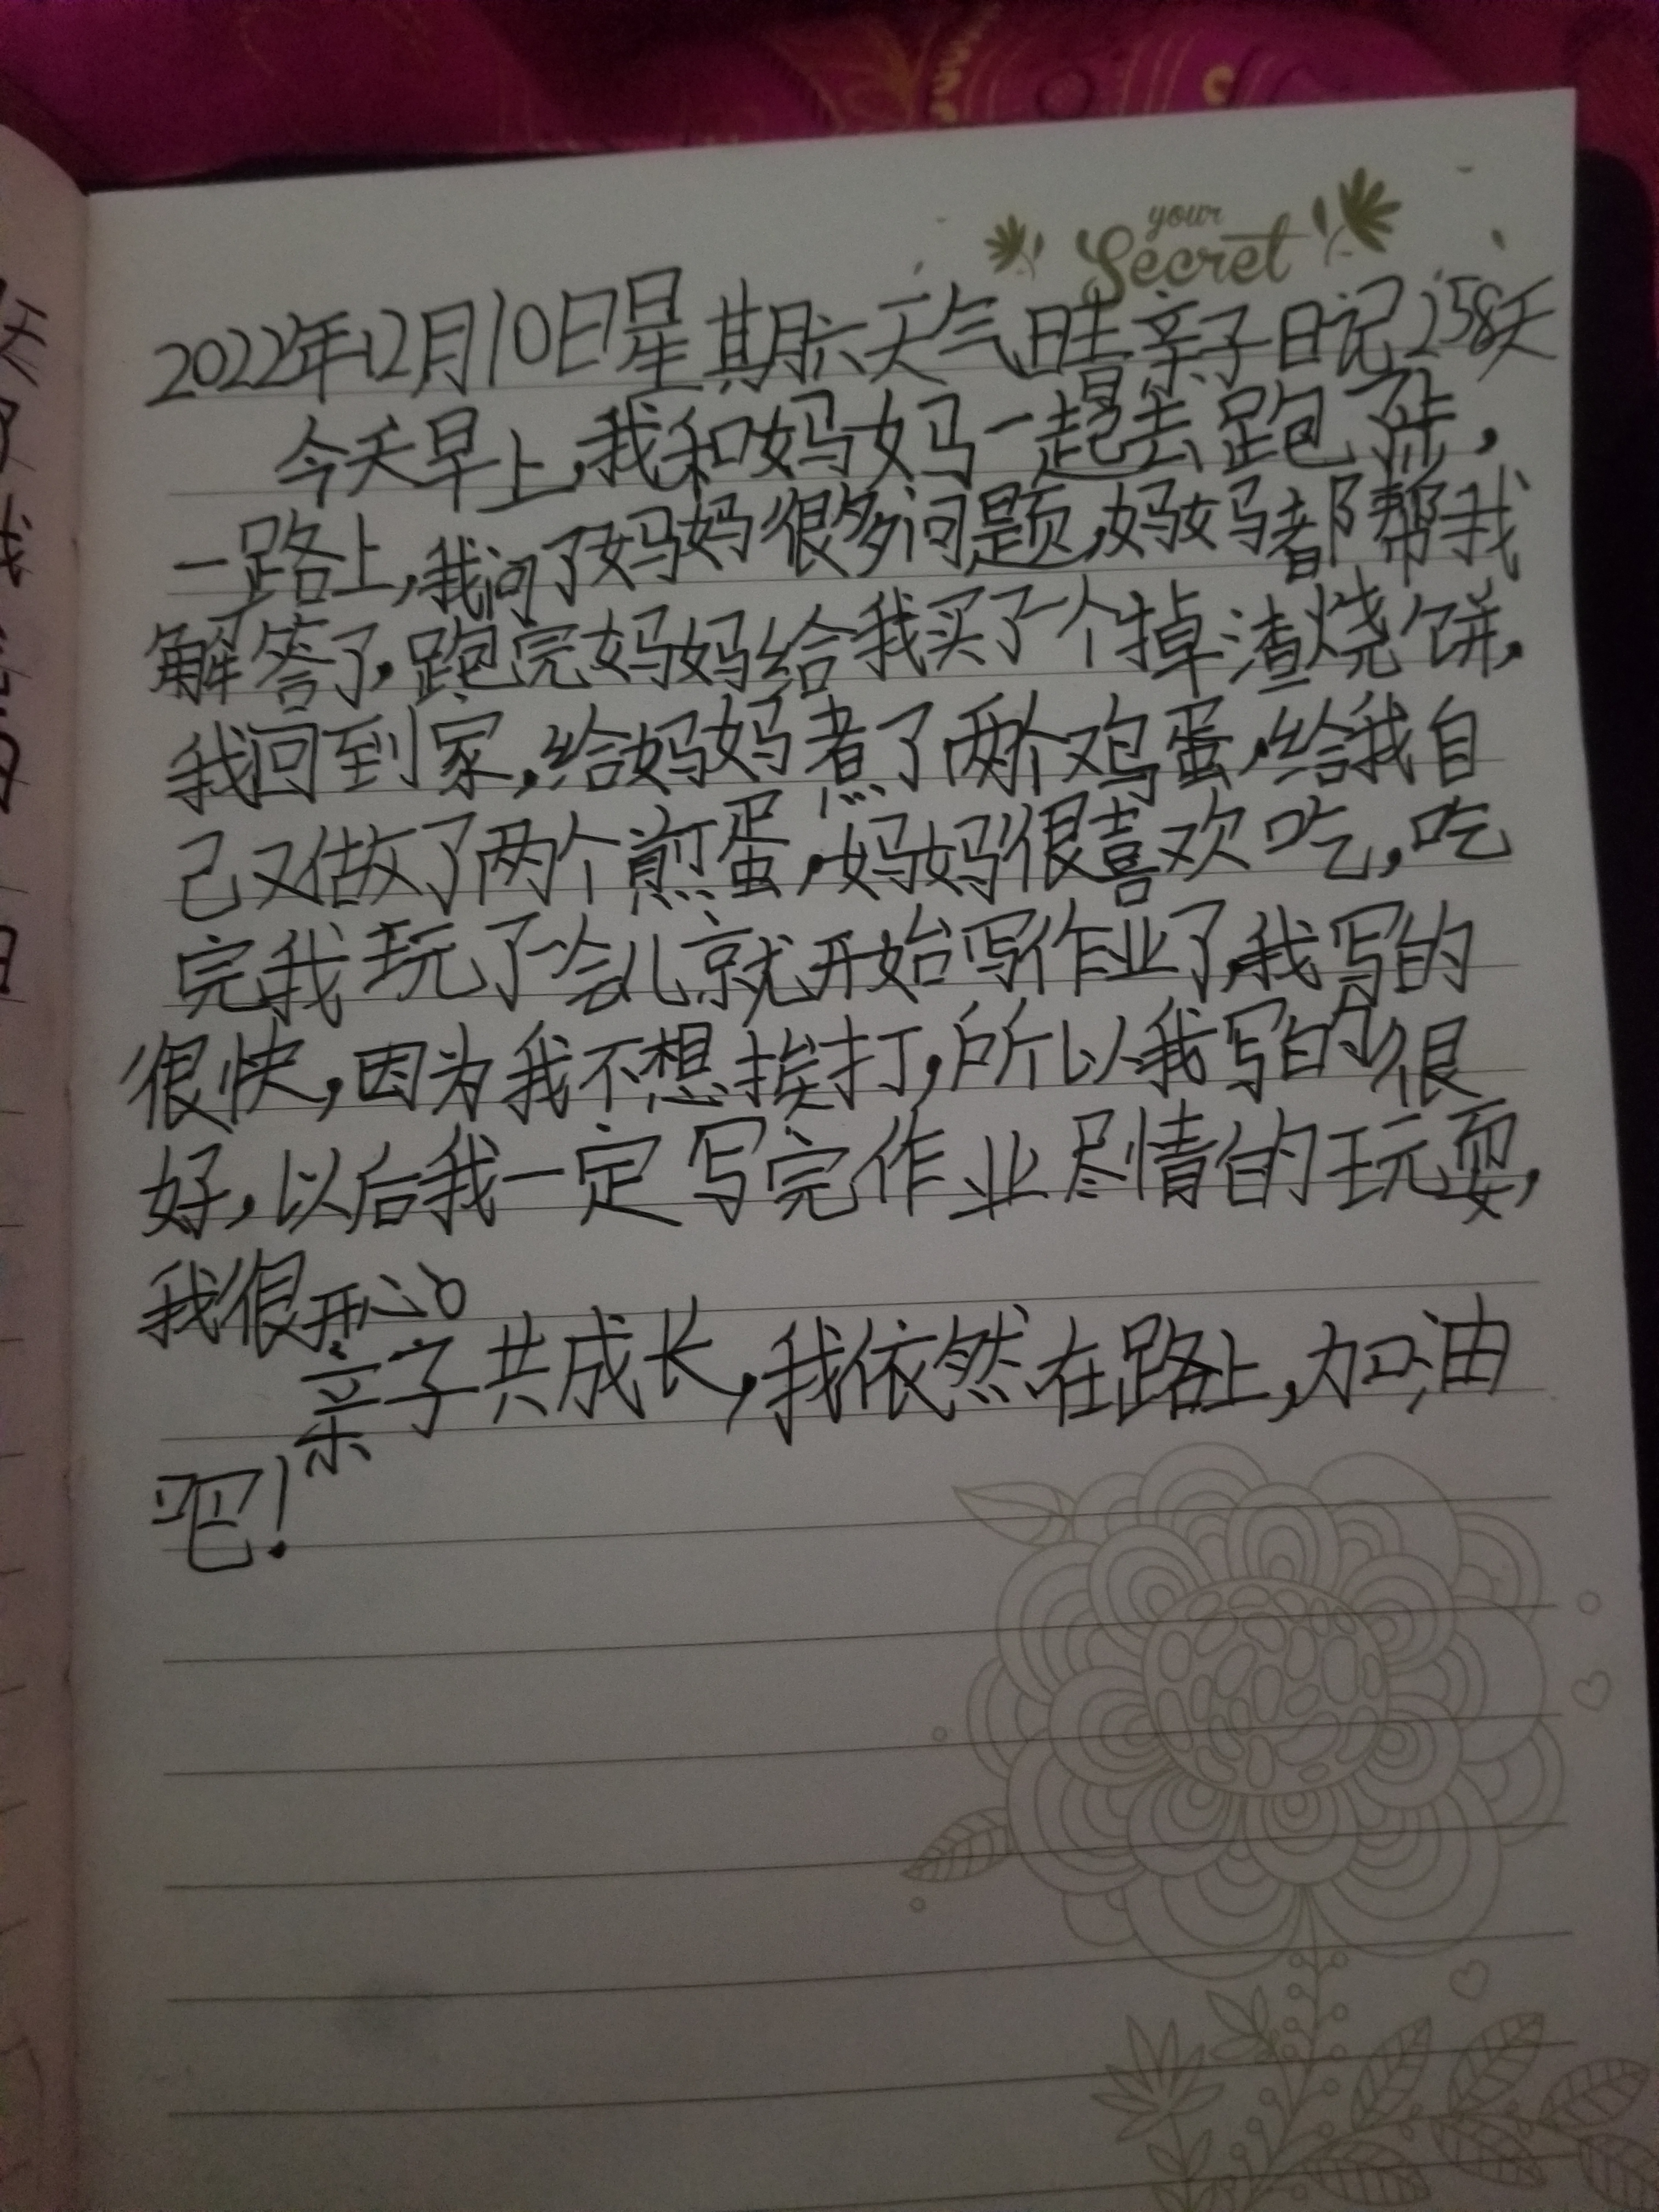 your
Secret
2022年12月10日星期六天气晴亲子日记258天
今天早上,我和妈妈一起去跑了步,
一路上,我问了妈妈很多问题,妈妈都帮我
解答了,跑完妈妈给我买了一个掉渣烧饼,
我回到家,给妈妈煮了两个鸡蛋,给我自
己又做了两个煎蛋,妈妈很喜欢吃,吃
完我玩了一会儿就开始写作业了,我写的
很快,因为我不想挨打,所以我写的很
好,以后我一定写完作业尽情的玩耍,
我很开心。
亲子共成长,我依然在路上,加油
吧!